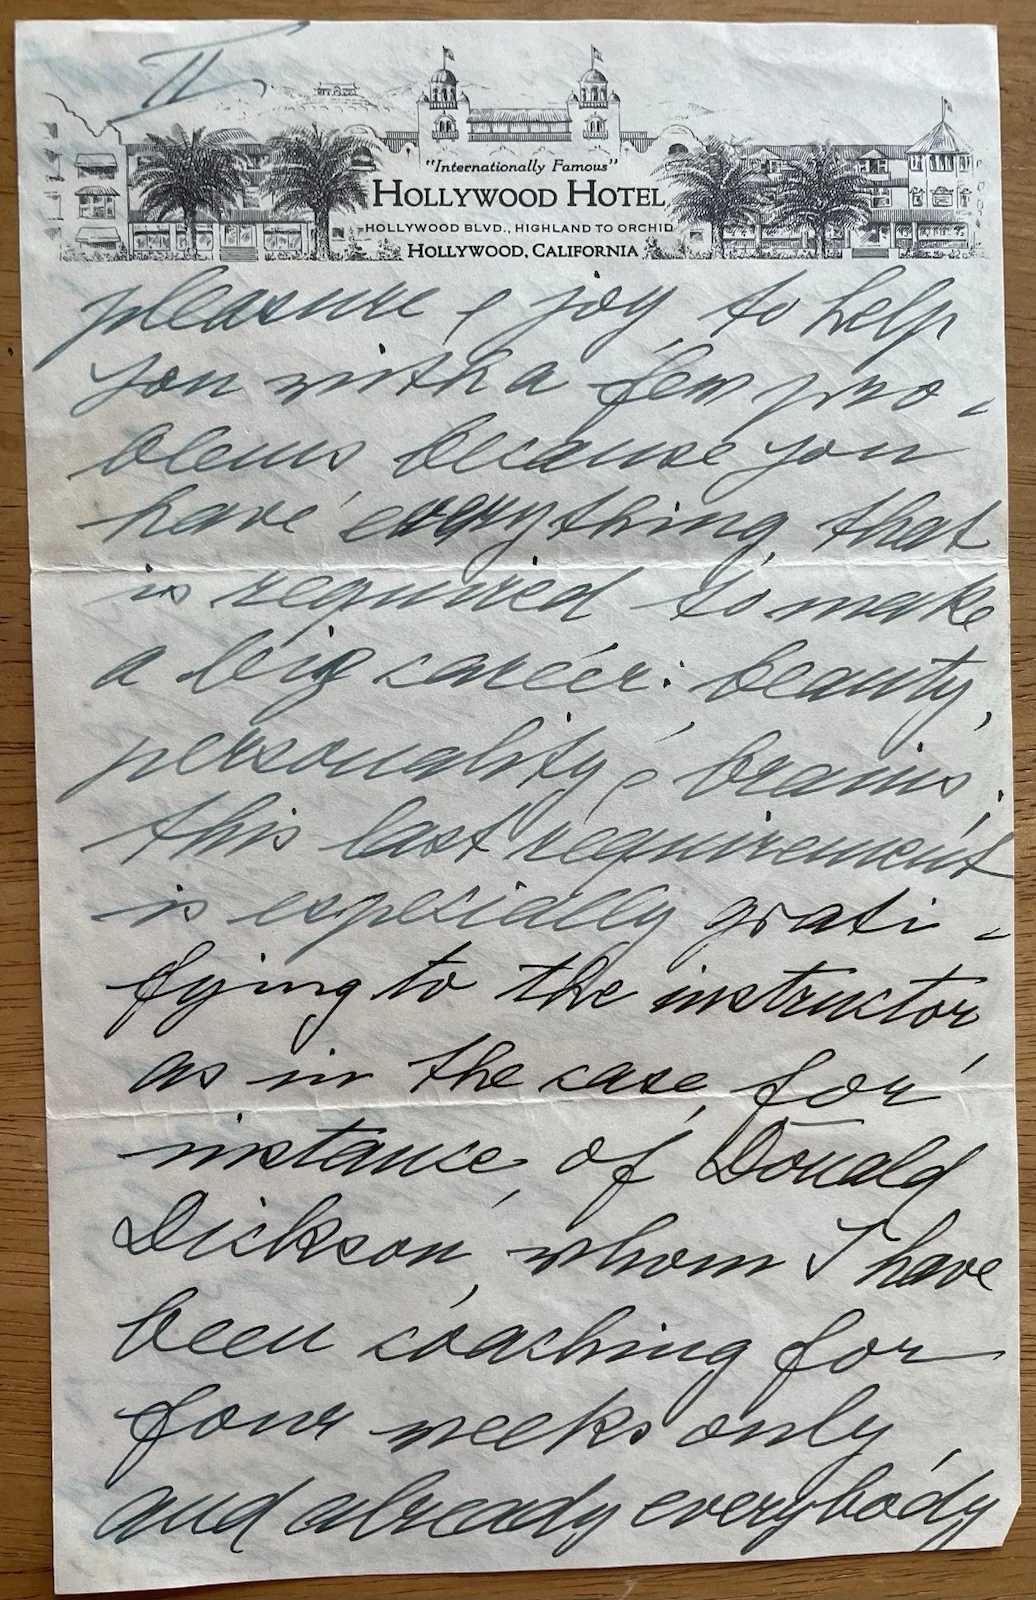 II
"Internationally Famous"
HOLLYWOOD HOTEL
HOLLYWOOD BLVD., HIGHLAND TO ORCHID
HOLLYWOOD, CALIFORNIA
pleasure & joy to help
you with a few pro-
blems because you
have everything that
is required to make
a big career: beauty,
personality & brains;
this last requirement
is especially grati-
fying to the instructor
as in the case, for
instance, of Donald
Dickson, whom I have
been coaching for
four weeks only,
and already everybody